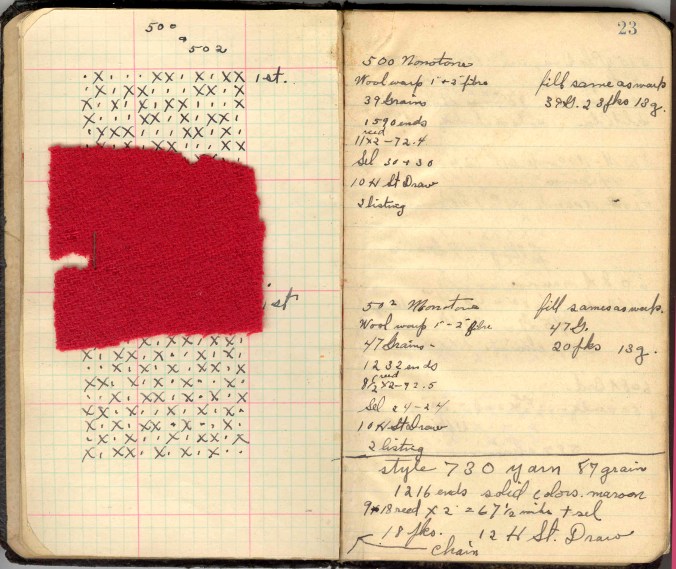 500
502
1st.
1st
23
500 Monotone
Wool warp 1" + 2" fibre fill same as warp
39 Grains 39 G. 23 pks 13 g.
1590 ends
reed
11x2 - 72.4
Sel 30 + 30
10 H St Draw
2 listing
502 Monotone fill same as warp.
Wool warp 1" - 2" fibre 47 G.
47 Grains - 20 pks 13 g.
1232 ends
reed
8½x2 - 72.5
Sel 24 - 24
10 H St Draw
2 listing
style 730 yarn 87 grain
1216 ends solid colors. maroon
9 18 reed x 2 = 67½ + sel
18 pks. 12 H St. Draw
chain